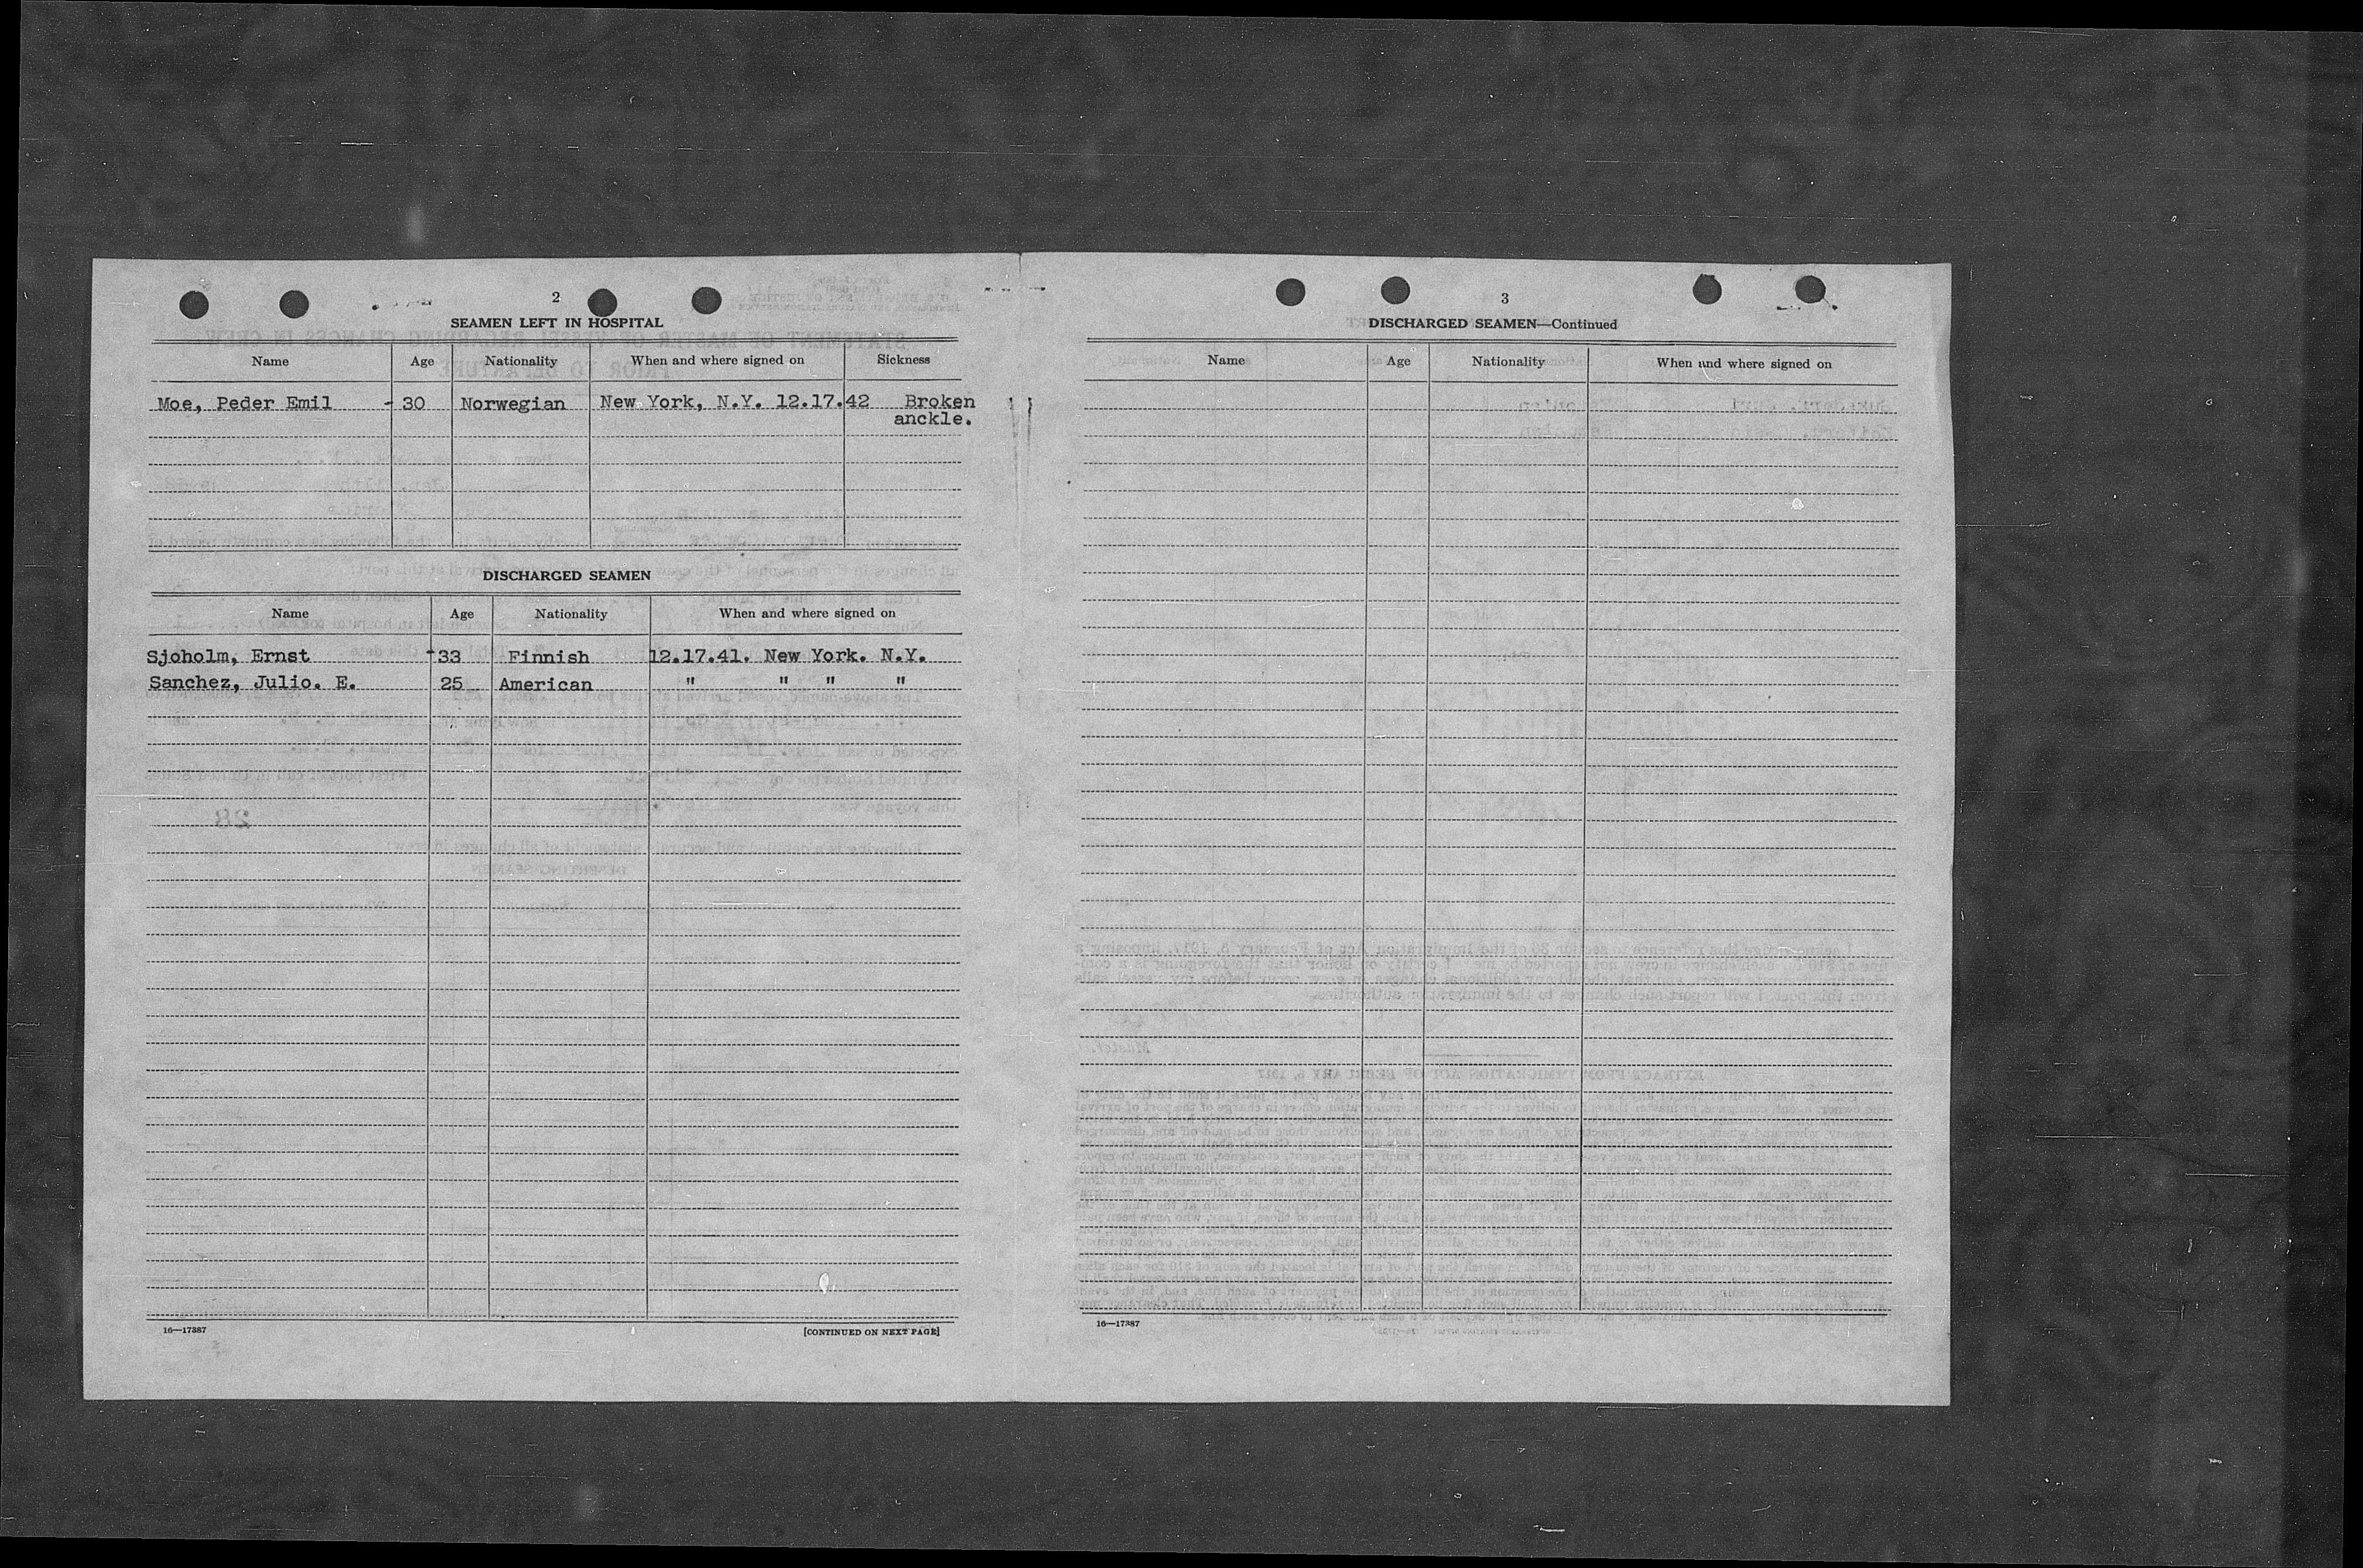 2
SEAMEN LEFT IN HOSPITAL
Name Age Nationality When and where signed on Sickness
Moe, Peder Emil - 30 Norwegian New York, N.Y. 12.17.42 Broken
anckle.
DISCHARGED SEAMEN
Name Age Nationality When and where signed on
Sjoholm, Ernst -33 Finnish 12.17.41. New York. N.Y.
Sanchez, Julio. E. 25 American " " " "
16—17387 [CONTINUED ON NEXT PAGE]
3
DISCHARGED SEAMEN—Continued
Name Age Nationality When and where signed on
16—17387